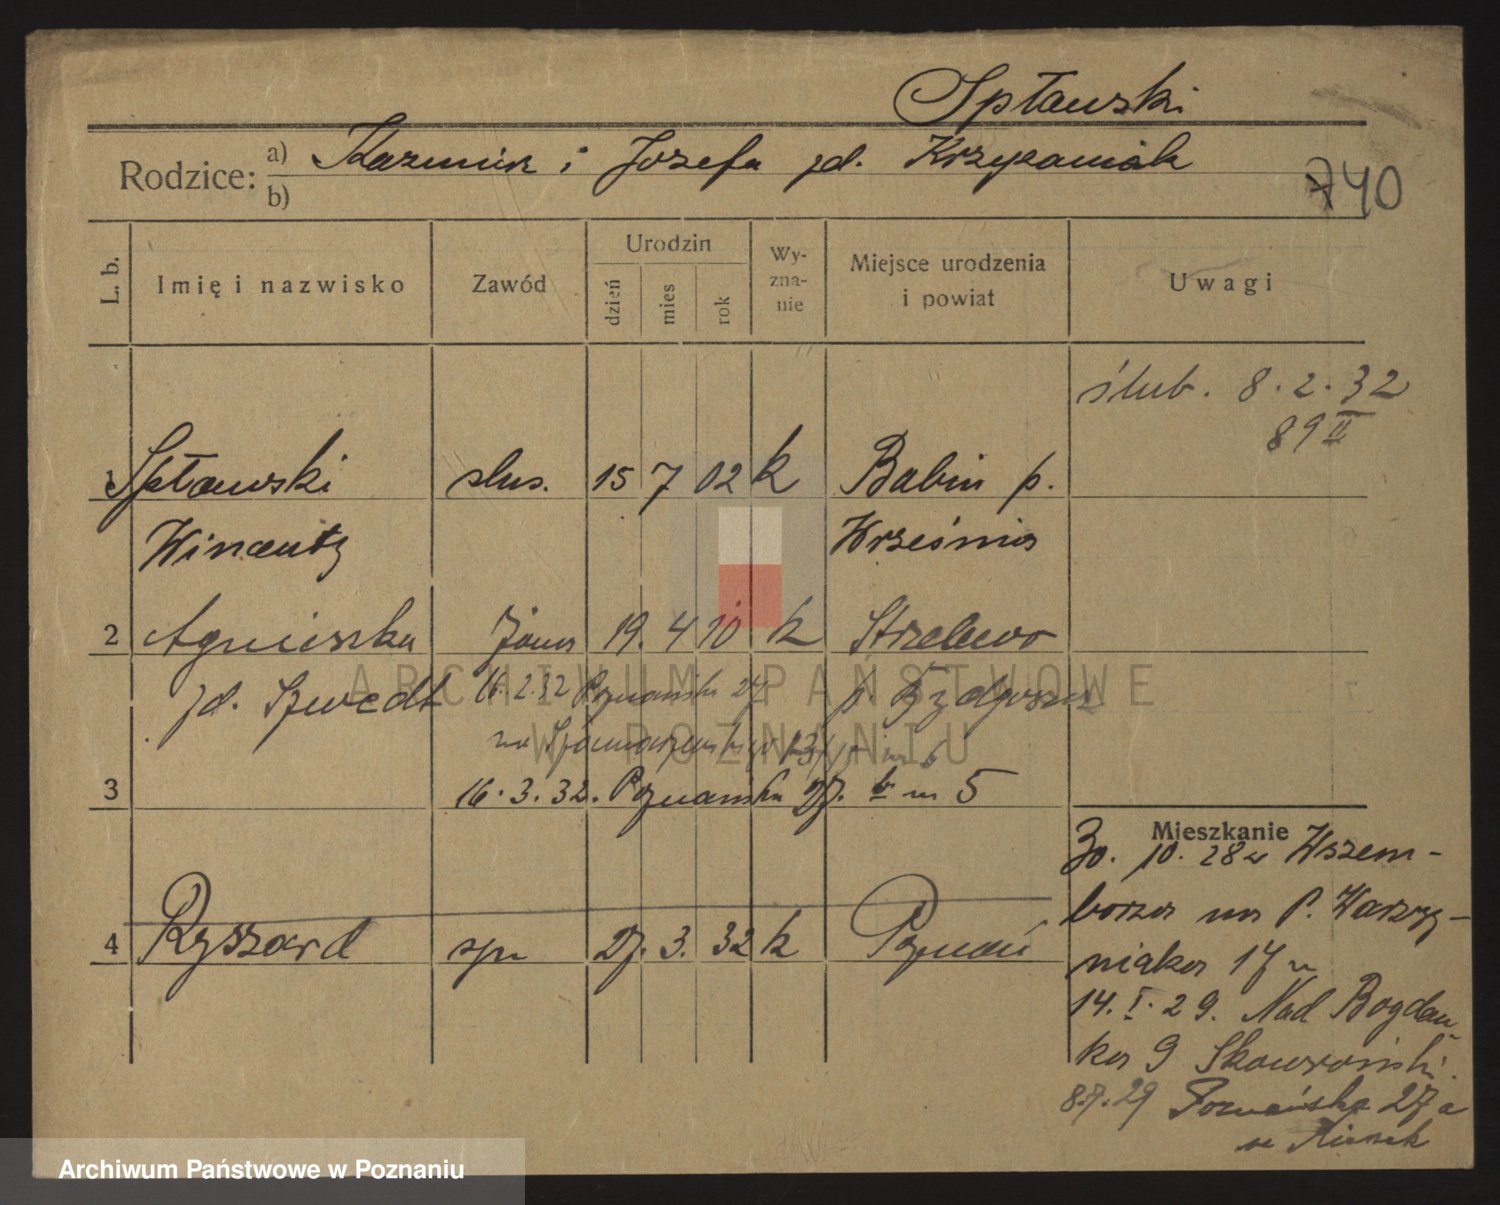 Spławski
Rodzice: a) Kazimierz i Józefa zd. Krzyżaniak
b)
740
L. b. Imię i nazwisko Zawód Urodzin dzień mies rok Wy-zna-nie Miejsce urodzenia i powiat Uwagi
ślub. 8.2.32
89 II
1 Spławski ślus. 15 7 02 k Babin p.
Wincenty Września
2 Agnieszka żona 19. 4 10 k Strzelewo
zd. Szwedt 16.2.32 Poznańska 27 p. Bydgoszcz
na
3 16.3.32. Poznańska 27. b m 5
Mieszkanie
30. 10. 28 z Wszem-
borza na P. Wawrzy-
niaka 17
14. I. 29. Nad Bogdan-
ka 9 Skowroński.
4 Ryszard syn 27. 3. 32 k Poznań
8.7.29 Poznańska 27a
ARCHIWUM PAŃSTWOWE
W POZNANIU
Archiwum Państwowe w Poznaniu